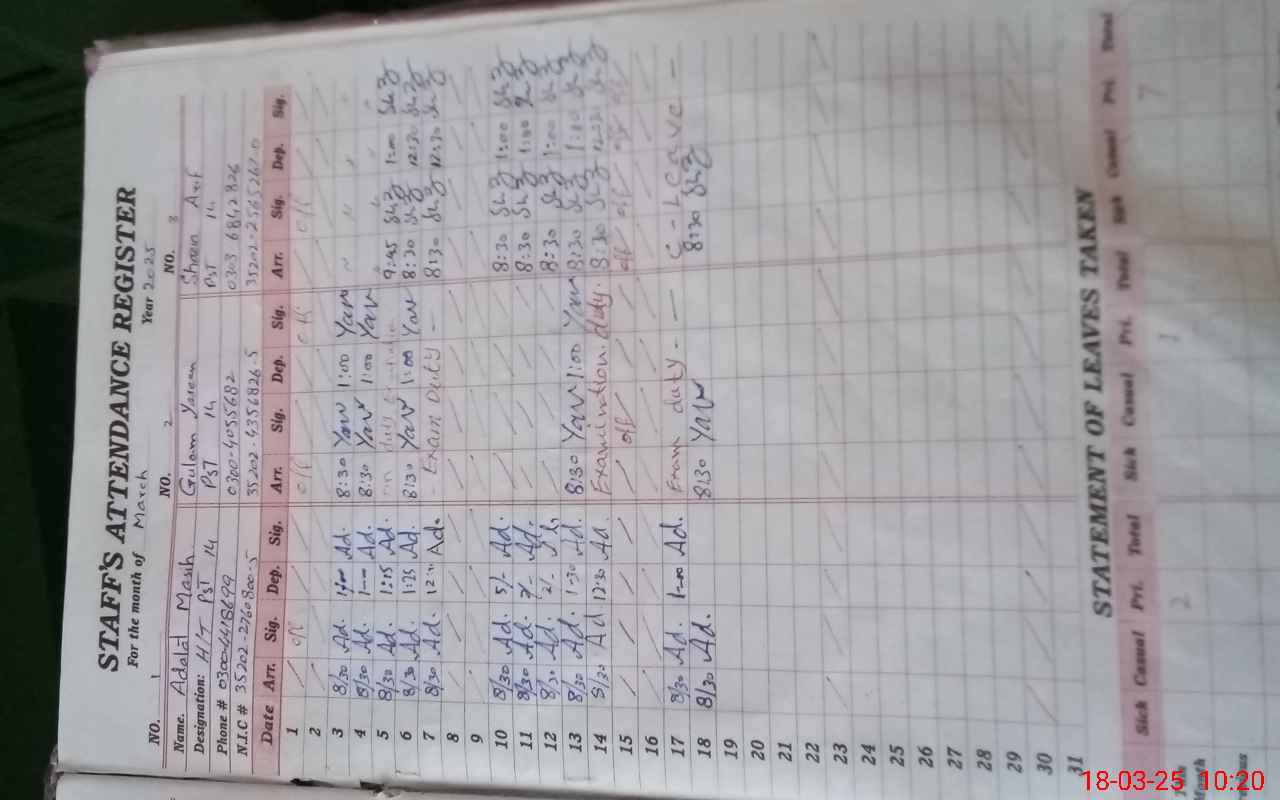 STAFF'S ATTENDANCE REGISTER
For the month of March Year 2025
NO. 1 NO. 2 NO. 3
Name. Adalat Masih Gulam Yaseen Asif
Designation: H/T PST 14 PST 14 PST 14
Phone # 0300-4055682 0303 6842826
N.I.C # 35202-2760800-5 35202-4356826-5
Date Arr. Sig. Dep. Sig. Arr. Sig. Dep. Sig. Arr. Sig. Dep. Sig.
1 off off off
2
3 8/30 Ad. Ad. 8:30 Yaw 1:00 Yaw
4 8/30 Ad. 1-00 Ad. 8:30 Yaw 1:00 Yaw
5 8/30 Ad. 1:15 Ad. 9:45 1:00
6 8/30 Ad. 1:25 Ad. 8:30 Yaw 1:00 Yaw 8:30 12:30
7 8/30 Ad. Ad. - Exam Duty - 8:30 12:30
8
9
10 8/30 Ad. 5/- Ad. 8:30 1:00
11 8/30 Ad. Ad. 8:30 1:00
12 8/30 Ad. 2/- 8:30 1:00
13 8/30 Ad. 1-30 Ad. 8:30 Yaw 1:00 Yaw 8:30 1:00
14 8/30 Ad 12:30 Ad. Examination duty. 8:30
15 off off off off
16
17 8/30 Ad. 1-00 Ad. Exam duty - C-Leave -
18 8/30 Ad. 8:30 Yaw 8:30
19
20
21
22
23
24
25
26
27
28
29
30
31
STATEMENT OF LEAVES TAKEN
Sick Casual Pri. Total Sick Casual Pri. Total Sick Casual Pri. Total
Month
2 1 7
18-03-25 10:20